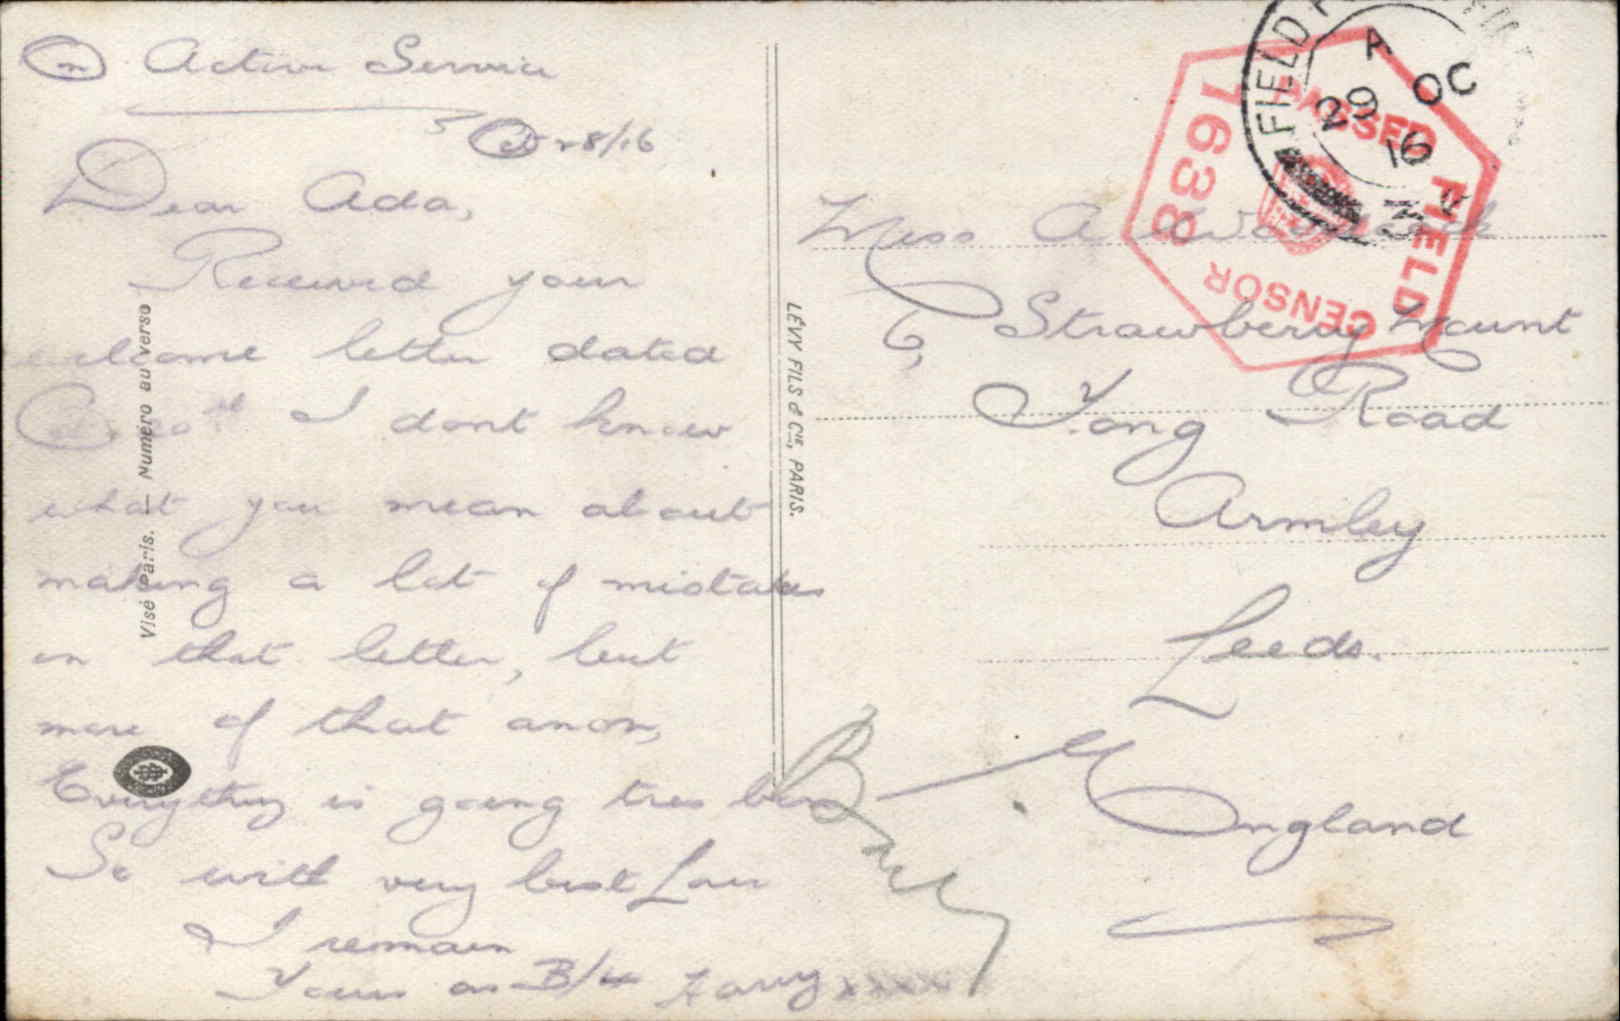 On Active Service
Oct 28/16
Dear Ada,
Received your
welcome letter dated
Oct 20th I dont know
what you mean about
making a lot of mistakes
in that letter, but
more of that anon,
Everything is going tres bien
So with very best Love
I remain
Yours as B/4 Harry xxxxx
Visé Paris. — Numéro au verso
LÉVY FILS & Cie, PARIS.
FIELD
A
29 OC
16
PASSED FIELD CENSOR
1638
Miss A
6, Strawberry Mount
Tong Road
Armley
Leeds.
England